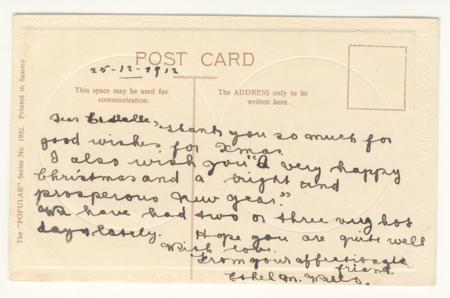 POST CARD
25-12-1912
This space may be used for
communication.
The ADDRESS only to be
written here.
The "POPULAR" Series No. 1932. Printed in Saxony
Dear Estelle, thank you so much for
good wishes for Xmas.
I also wish you "A very happy
Christmas and a bright and
prosperous New year."
We have had two or three very hot
days lately. Hope you are quite well
With love.
From your affectionate
friend
Ethel M.